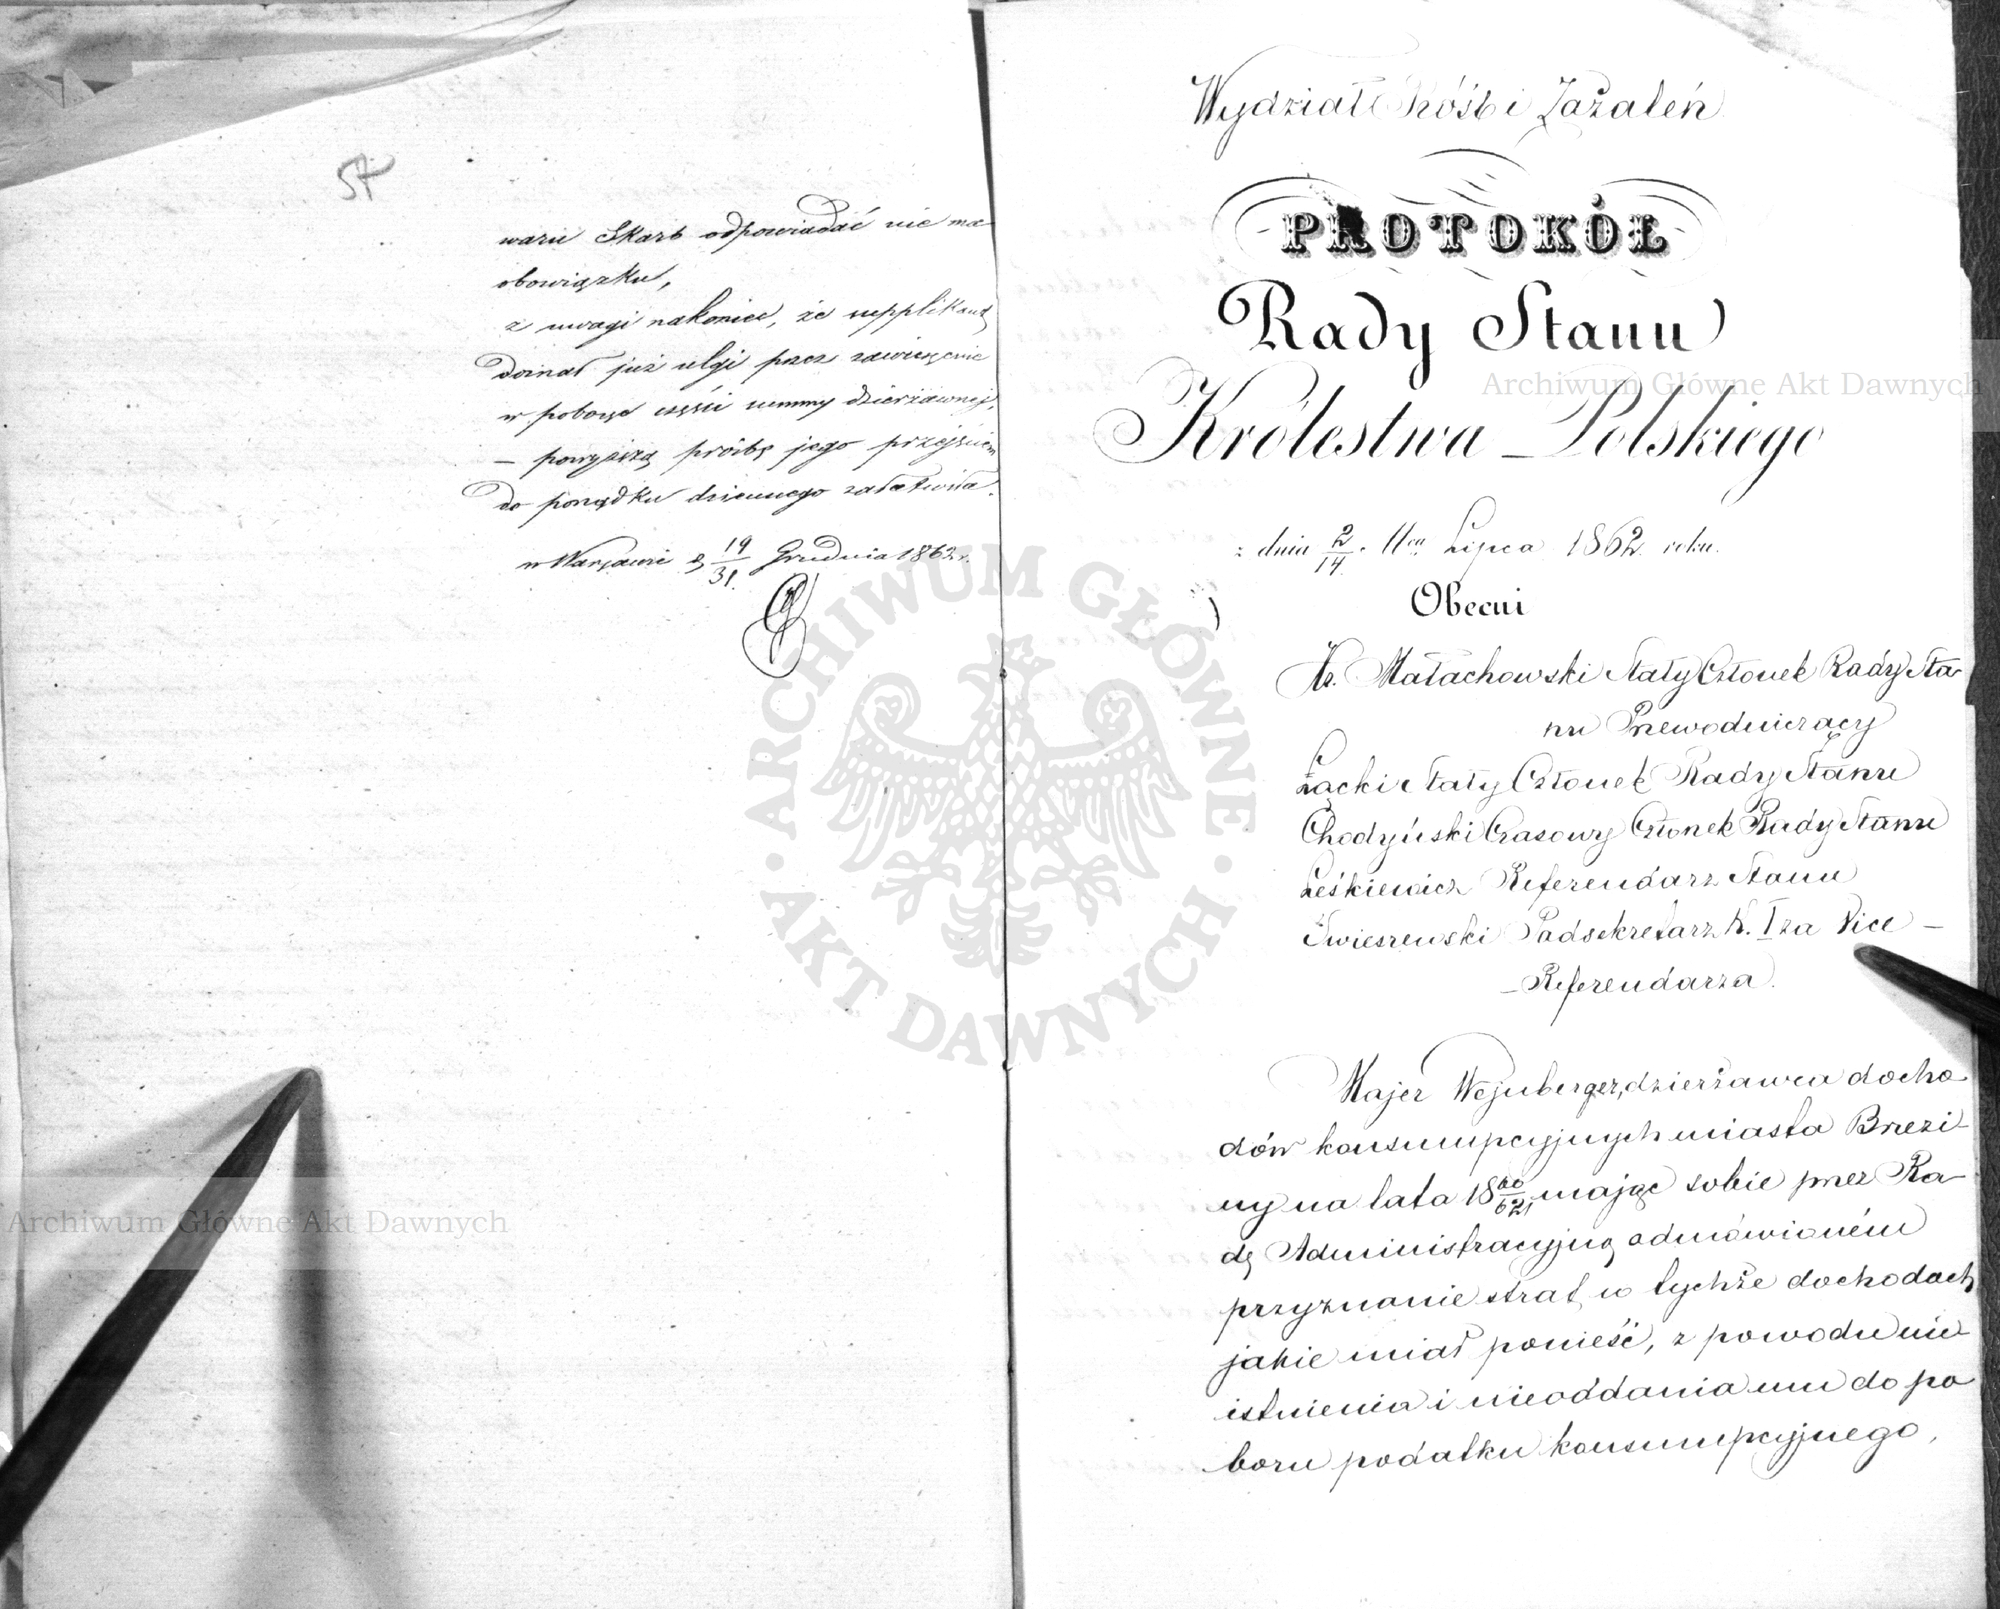 57
waru Skarb odpowiadać nie ma
obowiązku,
z uwagi nakoniec, że supplikant
doznał już ulgi przez zawieszenie
w poborze części summy dzierżawnej,
— powyższą prośbę jego przejściem
do porządku dziennego załatwiła.
w Warszawie d. 19/31 Grudnia 1862 r.
Wydział Próśb i Zażaleń
PROTOKÓŁ
Rady Stanu
Królestwa Polskiego
z dnia 2/14 Lipca 1862 roku.
Obecni
Hr. Małachowski Stały Członek Rady Sta-
nu Przewodniczący
Łącki Stały Członek Rady Stanu
Chodyński Czasowy Członek Rady Stanu
Leśkiewicz Referendarz Stanu
Świeszewski Podsekretarz K. I za Vice-
Referendarza.
Majer Wejnberger, dzierżawca docho-
dów konsumpcyjnych miasta Brzezi-
ny na lata 1860/62, mając sobie przez Ra-
dę Administracyjną odmówioném
przyznanie strat w tychże dochodach
jakie miał ponieść, z powodu nie
istnienia i nieoddania mu do po
boru podatku konsumpcyjnego,
ARCHIWUM GŁÓWNE AKT DAWNYCH
Archiwum Główne Akt Dawnych
Archiwum Główne Akt Dawnych